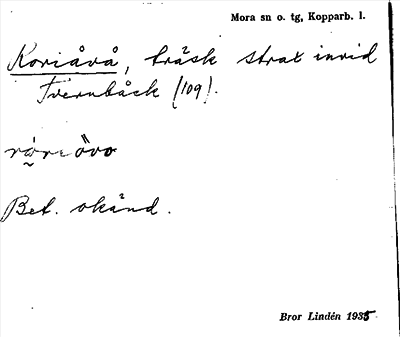 Mora sn o. tg, Kopparb. l.
Koriåvå, träsk strax invid
Tvernbäck (109).
Bet. okänd.
Bror Lindén 1935